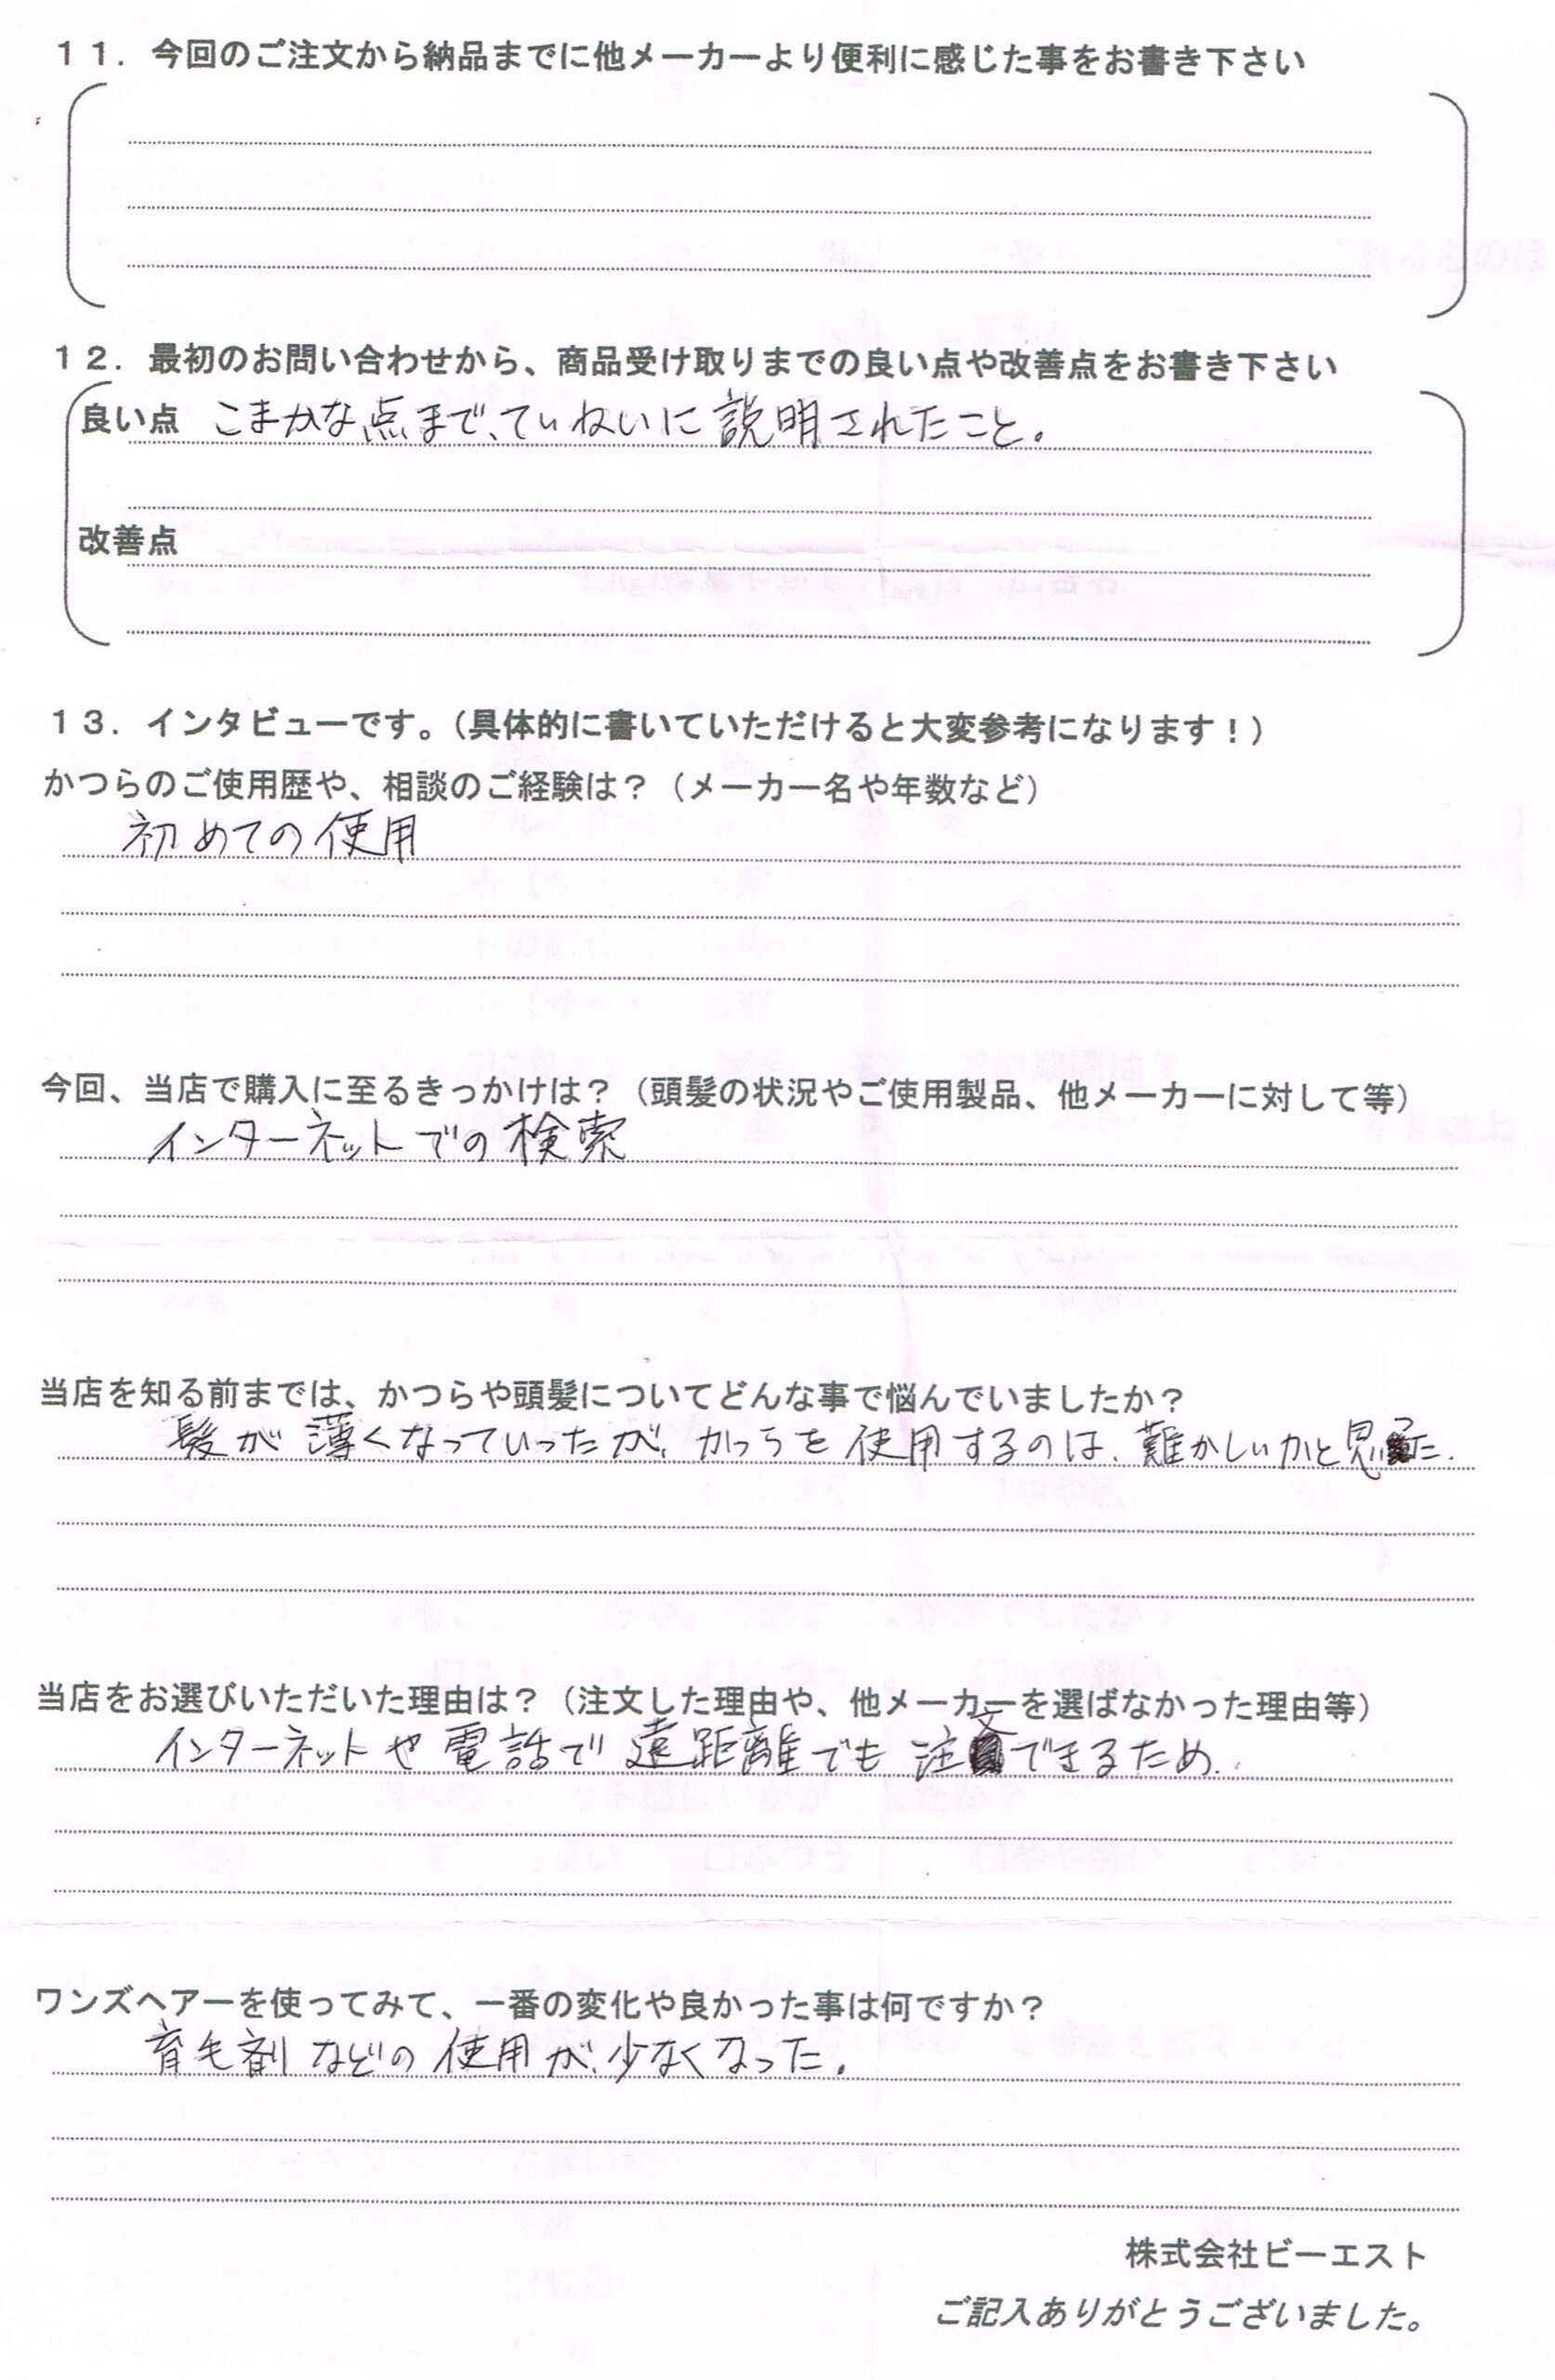 １１．今回のご注文から納品までに他メーカーより便利に感じた事をお書き下さい
１２．最初のお問い合わせから、商品受け取りまでの良い点や改善点をお書き下さい
良い点 こまかな点まで、ていねいに説明されたこと。
改善点
１３．インタビューです。（具体的に書いていただけると大変参考になります！）
かつらのご使用歴や、相談のご経験は？（メーカー名や年数など）
初めての使用
今回、当店で購入に至るきっかけは？（頭髪の状況やご使用製品、他メーカーに対して等）
インターネットでの検索
当店を知る前までは、かつらや頭髪についてどんな事で悩んでいましたか？
髪が薄くなっていったが、かつらを使用するのは、難かしいかと思った。
当店をお選びいただいた理由は？（注文した理由や、他メーカーを選ばなかった理由等）
インターネットや電話で遠距離でも注文できるため。
ワンズヘアーを使ってみて、一番の変化や良かった事は何ですか？
育毛剤などの使用が、少なくなった。
株式会社ビーエスト
ご記入ありがとうございました。